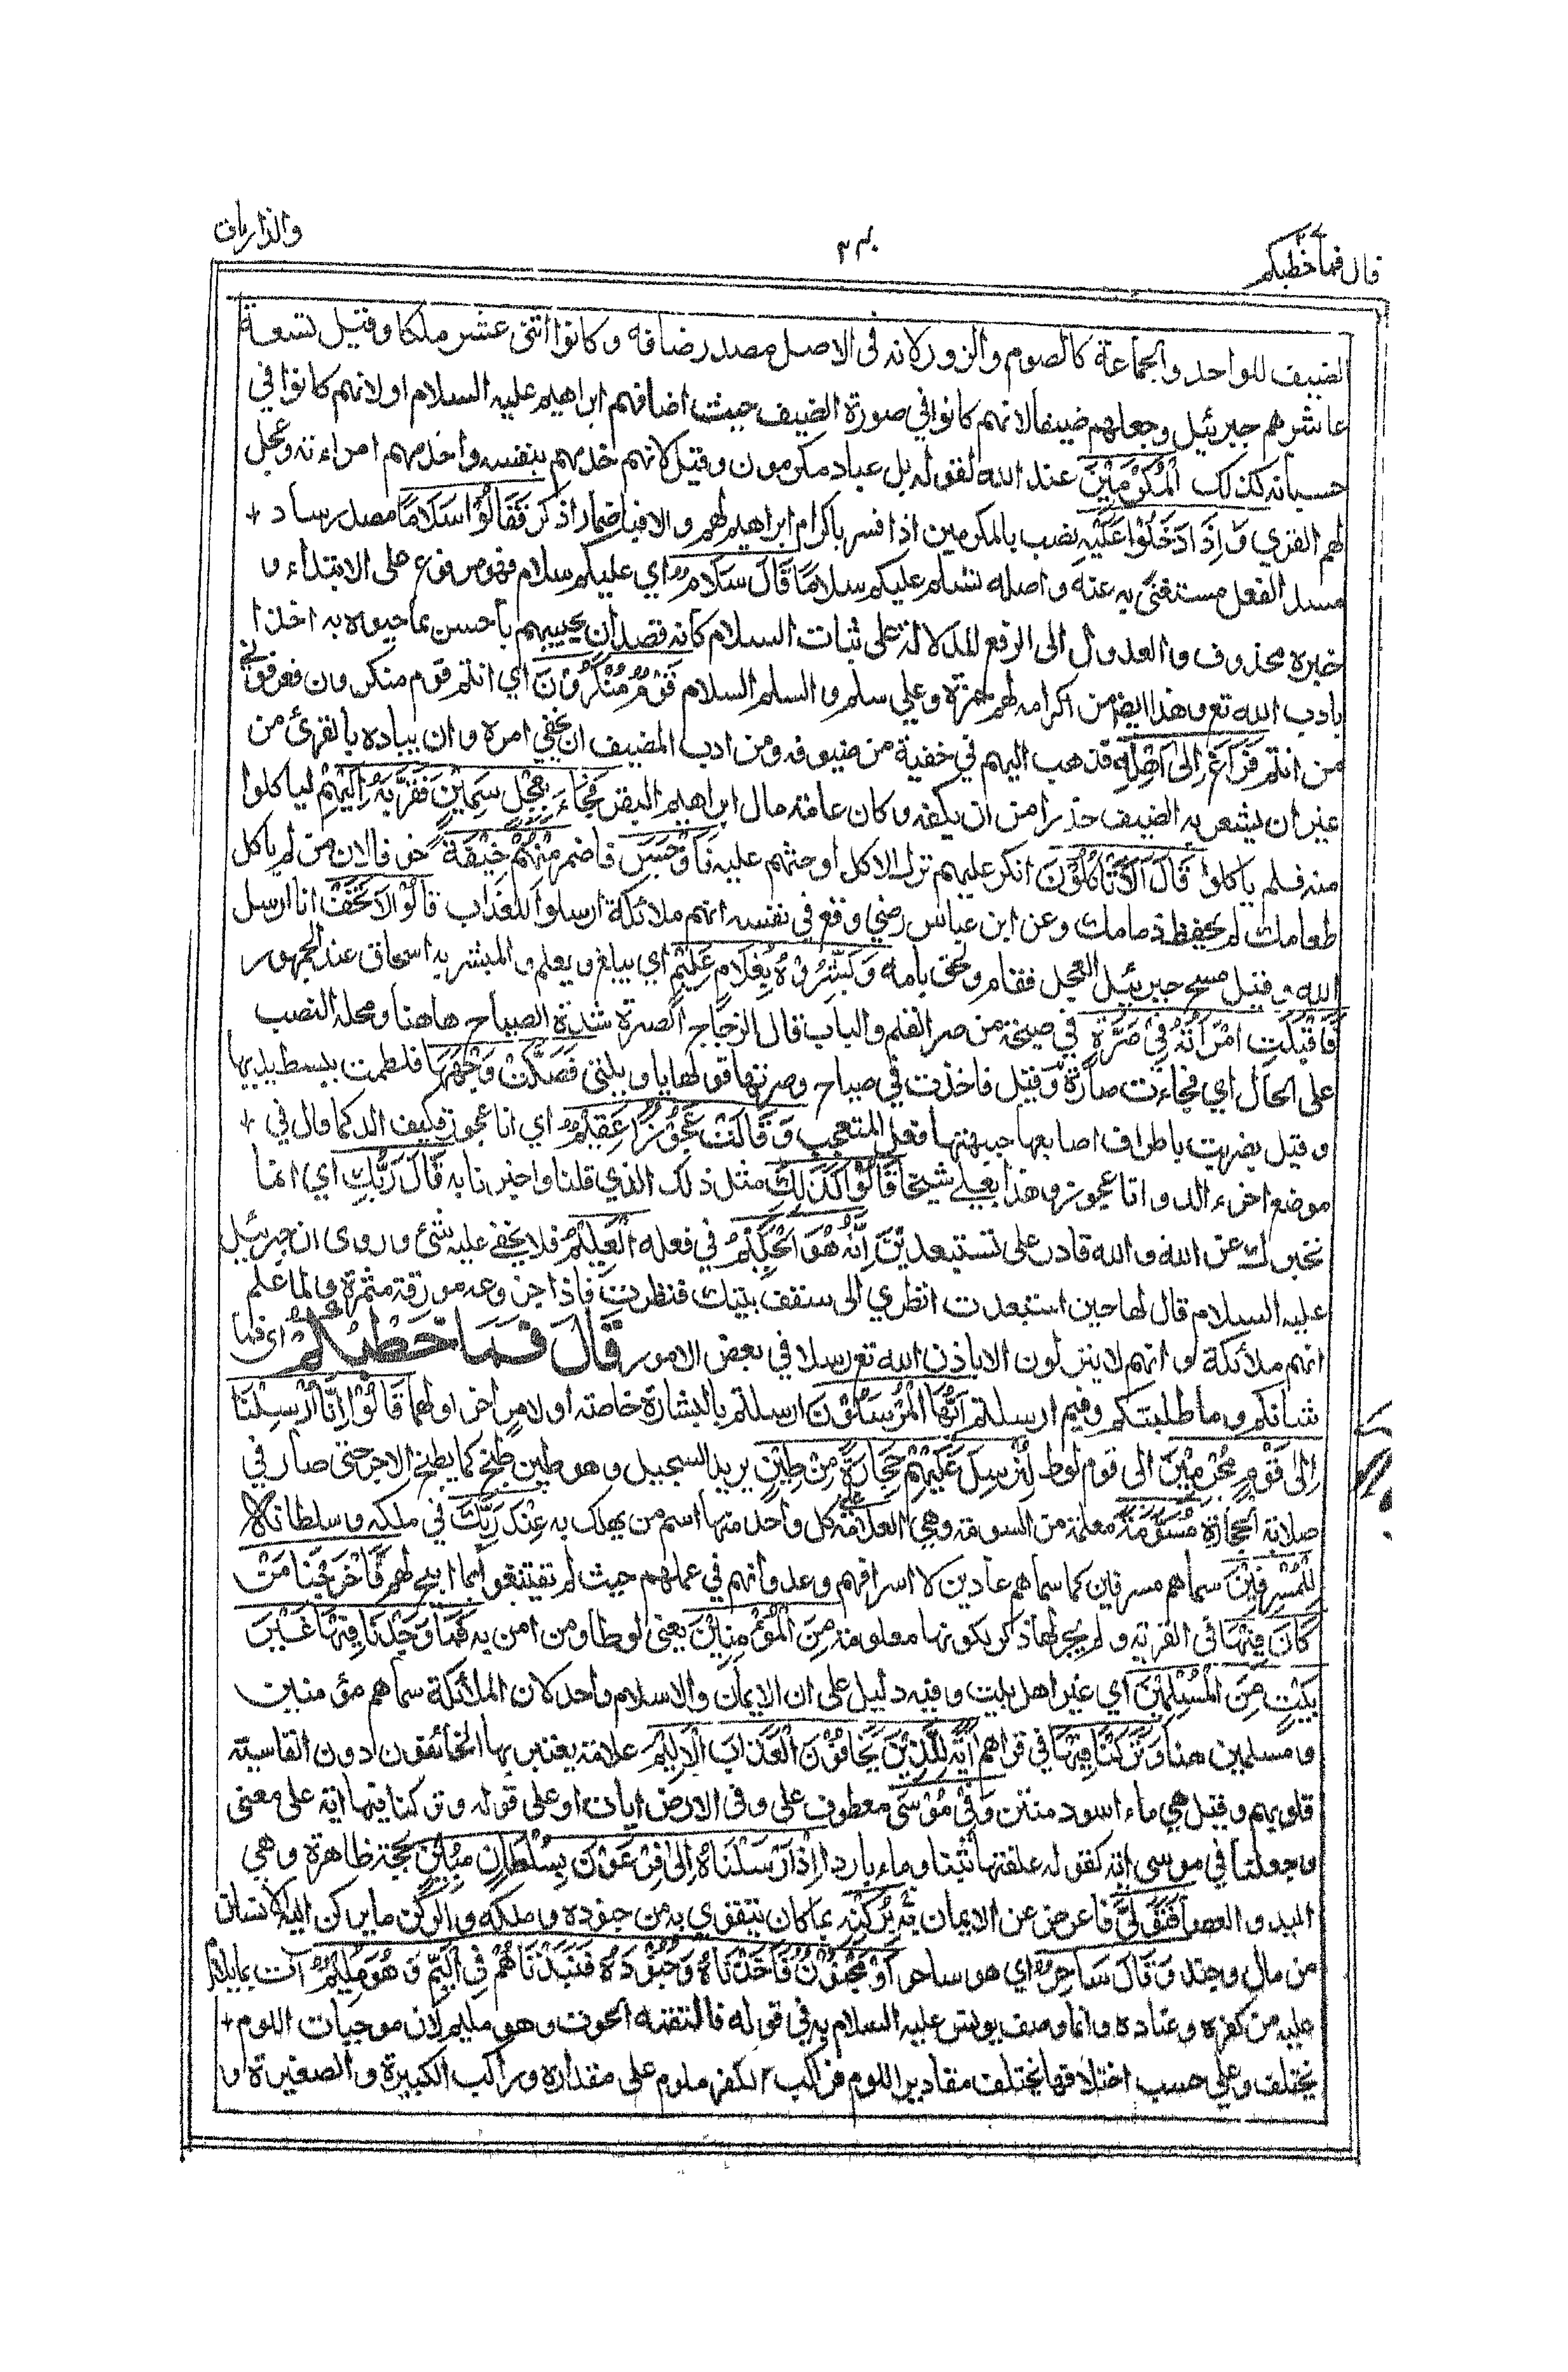 قال فما خطبكم
٣٠٢
والذاريات
الضيف للواحد والجماعة كالصوم والزور لانه فى الاصل مصدر ضافه وكانوا اثنى عشر ملكا وقيل تسعة
عاشرهم جبرئيل وجعلهم ضيفا لانهم كانوا في صورة الضيف حيث اضافهم ابراهيم عليه السلام او لانهم كانوا في
حسبانه كذلك الْمُكْرَمِيْنَ عند الله لقوله بل عباد مكرمون وقيل لانهم خدمهم بنفسه واخدمهم امراءته وعجل
لهم القري وَاِذْ دَخَلُوْا عَلَيْهِ نصب بالمكرمين اذا فسر باكرام ابراهيم لهم والا فباضمار اذكر فَقَالُوْا سَلَامًا مصدر ساد
مسد الفعل مستغنى به عنه واصله نسلم عليكم سلاما قَالَ سَلَامٌ اي عليكم سلام فهو مرفوع على الابتداء و
خبره محذوف والعدول الى الرفع للدلالة على ثبات السلام كانه قصد ان يحييهم باحسن مما حيوه به اخذا
بادب الله تع وهذا ايضا من اكرامه لهم حمزة وعلي سلم والسلم السلام قَوْمٌ مُنْكَرُوْنَ اي انتم قوم منكرون فعرفوني
من انتم فَرَاغَ اِلٰى اَهْلِهٖ فذهب اليهم في خفية من ضيوفه ومن ادب المضيف ان يخفي امره وان يباده بالقرى من
غير ان يشعر به الضيف حذرا من ان يكفه وكان عامة مال ابراهيم البقر فَجَاءَ بِعِجْلٍ سَمِيْنٍ فَقَرَّبَهٗ اِلَيْهِمْ لياكلوا
منه فلم ياكلوا قَالَ اَلَا تَاْكُلُوْنَ انكر عليهم ترك الاكل او حثهم عليه فَاَوْجَسَ فاضمر مِنْهُمْ خِيْفَةً خوفا لان من لم ياكل
طعامك لم يحفظ ذمامك وعن ابن عباس رضي وقع في نفسه انهم ملائكة ارسلوا للعذاب قَالُوْا لَا تَخَفْ انا ارسل
الله وقيل مسح جبرئيل العجل فقام ولحق بامه وَبَشَّرُوْهُ بِغُلَامٍ عَلِيْمٍ اي يبلغ ويعلم والمبشر به اسحاق عند الجمهور
فَاَقْبَلَتِ امْرَاَتُهٗ فِيْ صَرَّةٍ في صيحة من صر القلم والباب قال الزجاج الصرة شدة الصياح هاهنا ومحله النصب
على الحال اي فجاءت صارة وقيل فاخذت في صياح وصرتها قولها يا ويلتى فَصَكَّتْ وَجْهَهَا فلطمت ببسط يديها
وقيل ضربت باطراف اصابعها جبهتها فعل المتعجب وَقَالَتْ عَجُوْزٌ عَقِيْمٌ اي انا عجوز فكيف الد كما قال في
موضع اخر ءالد وانا عجوز وهذا بعلي شيخا قَالُوْا كَذٰلِكِ مثل ذلك الذي قلنا واخبرنا به قَالَ رَبُّكِ اي انما
نخبرك عن الله والله قادر على ما تستبعدين اِنَّهٗ هُوَ الْحَكِيْمُ في فعله الْعَلِيْمُ فلا يخفى عليه شئ وروى ان جبرئيل
عليه السلام قال لها حين استبعدت انظري الى سقف بيتك فنظرت فاذا جذوعه مورقة مثمرة ولما علم
انهم ملائكة وانهم لا ينزلون الا باذن الله تع رسلا في بعض الامور قَالَ فَمَا خَطْبُكُمْ اى فما
شانكم وما طلبتكم وفيم ارسلتم اَيُّهَا الْمُرْسَلُوْنَ ارسلتم بالبشارة خاصة او لامر اخر او لهما قَالُوْا اِنَّا اُرْسِلْنَا
اِلٰى قَوْمٍ مُجْرِمِيْنَ الى قوم لوط لِنُرْسِلَ عَلَيْهِمْ حِجَارَةً مِنْ طِيْنٍ يريد السجيل وهو طين طبخ كما يطبخ الاجر حتى صار في
صلابة الحجارة مُسَوَّمَةً معلمة من السومة وهي العلامة على كل واحد منها اسم من يهلك به عِنْدَ رَبِّكَ في ملكه وسلطانه
لِلْمُسْرِفِيْنَ سماهم مسرفين كما سماهم عادين لاسرافهم وعدوانهم في عملهم حيث لم يقتنعوا بما ابيح لهم فَاَخْرَجْنَا مَنْ
كَانَ فِيْهَا فى القرية ولم يجر لها ذكر لكونها معلومة مِنَ الْمُؤْمِنِيْنَ يعنى لوطا ومن امن به فَمَا وَجَدْنَا فِيْهَا غَيْرَ
بَيْتٍ مِنَ الْمُسْلِمِيْنَ اي غير اهل بيت وفيه دليل على ان الايمان والاسلام واحد لان الملائكة سماهم مؤمنين
ومسلمين هنا وَتَرَكْنَا فِيْهَا في قراهم اٰيَةً لِلَّذِيْنَ يَخَافُوْنَ الْعَذَابَ الْاَلِيْمَ علامة يعتبر بها الخائفون دون القاسية
قلوبهم وقيل هي ماء اسود منتن وَفِيْ مُوْسٰى معطوف على وفى الارض ايات او على قوله وتركنا فيها اية على معنى
وجعلنا في موسى اية كقوله علفتها تبنا وماء باردا اِذْ اَرْسَلْنَاهُ اِلٰى فِرْعَوْنَ بِسُلْطَانٍ مُبِيْنٍ بحجة ظاهرة وهي
اليد والعصا فَتَوَلّٰى فاعرض عن الايمان بِرُكْنِهٖ بما كان يتقوي به من جنوده وملكه والركن ما يركن اليه الانسان
من مال وجند وَقَالَ سَاحِرٌ اي هو ساحر اَوْ مَجْنُوْنٌ فَاَخَذْنَاهُ وَجُنُوْدَهٗ فَنَبَذْنَاهُمْ فِي الْيَمِّ وَهُوَ مُلِيْمٌ آت بما يلام
عليه من كفره وعناده وانما وصف يونس عليه السلام به في قوله فالتقمه الحوت وهو مليم لان موجبات اللوم
يختلف وعلى حسب اختلافها يختلف مقادير اللوم فراكب الكفر ملوم على مقداره وراكب الكبيرة والصغيرة و